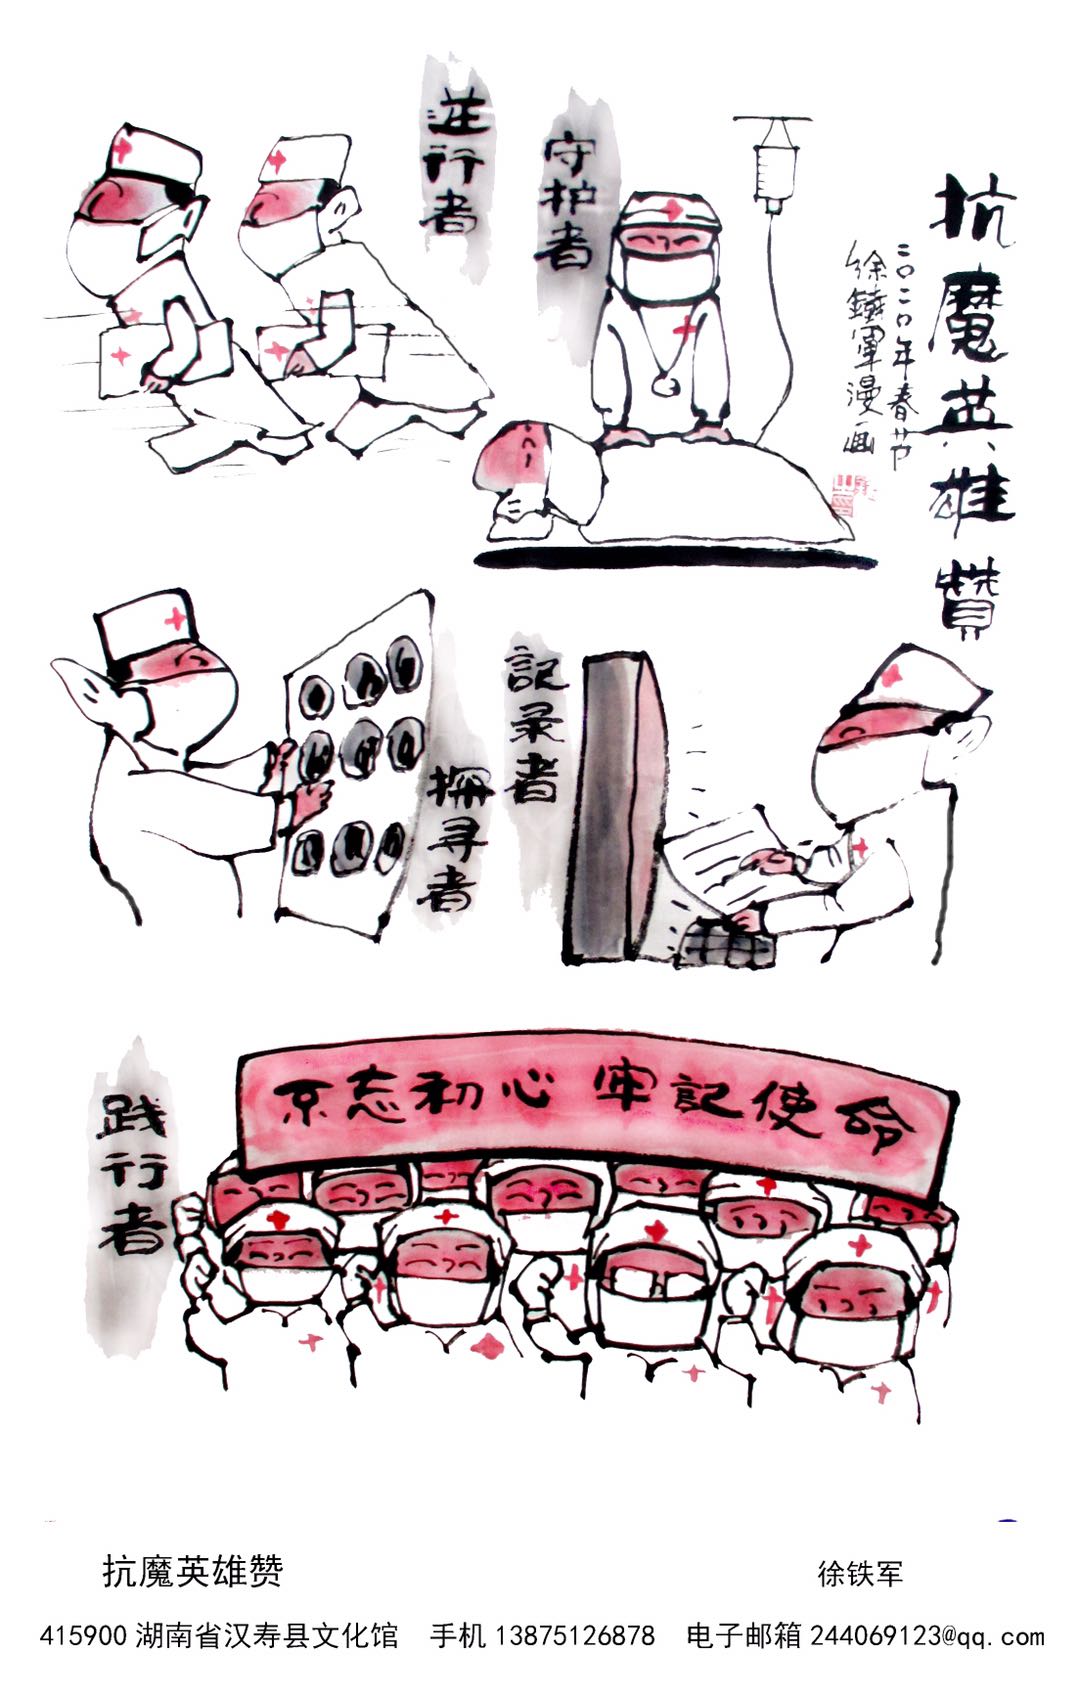 抗魔英雄赞
二〇二〇年春节
徐鐵軍漫画
逆行者
守护者
探寻者
記录者
践行者
不忘初心 牢記使命
抗魔英雄赞
徐铁军
415900 湖南省汉寿县文化馆 手机 13875126878 电子邮箱 244069123@qq.com